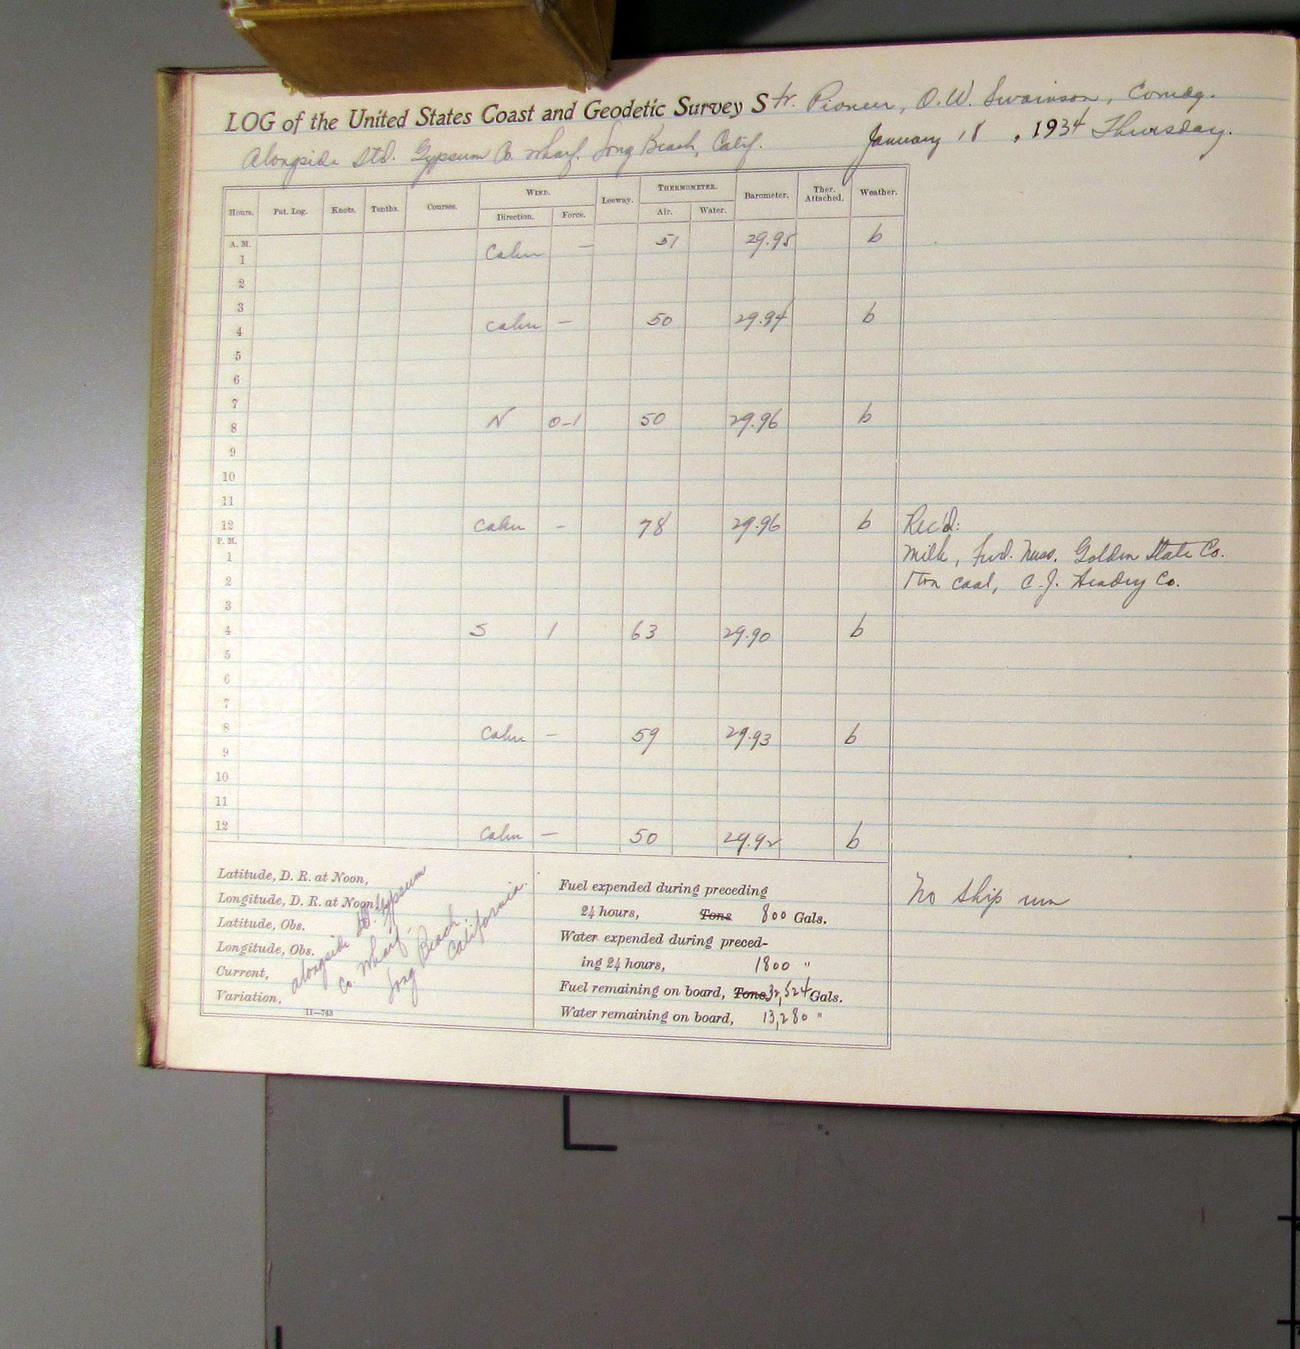 LOG of the United States Coast and Geodetic Survey Str. Pioneer, O.W. Swainson, Comdg.
Alongside Std. Gypsum Co. Wharf. Long Beach, Calif. January 18, 1934 Thursday.
Hours. Pat. Log. Knots. Tenths. Courses. WIND. Leeway. THERMOMETER. Barometer. Ther. Attached. Weather.
Direction. Force. Air. Water.
A. M.
1 Calm – 51 29.95 b
2
3
4 calm – 50 29.94 b
5
6
7
8 N 0-1 50 29.96 b
9
10
11
12 calm - 78 29.96 b Rec'd:
P. M.
1 Milk, Fwd. Mess. Golden State Co.
2 1 ton coal, C.J. Hendry Co.
3
4 S 1 63 29.90 b
5
6
7
8 Calm – 59 29.93 b
9
10
11
12 Calm – 50 29.92 b
Latitude, D. R. at Noon,
Longitude, D. R. at Noon,
Latitude, Obs.
Longitude, Obs.
Current,
Variation,
alongside Std. Gypsum
Co. Wharf.
Long Beach.
California.
11—743
Fuel expended during preceding
24 hours, Tons 800 Gals.
Water expended during preced-
ing 24 hours, 1800 "
Fuel remaining on board, Tons 32,524 Gals.
Water remaining on board, 13,280 "
No ship run